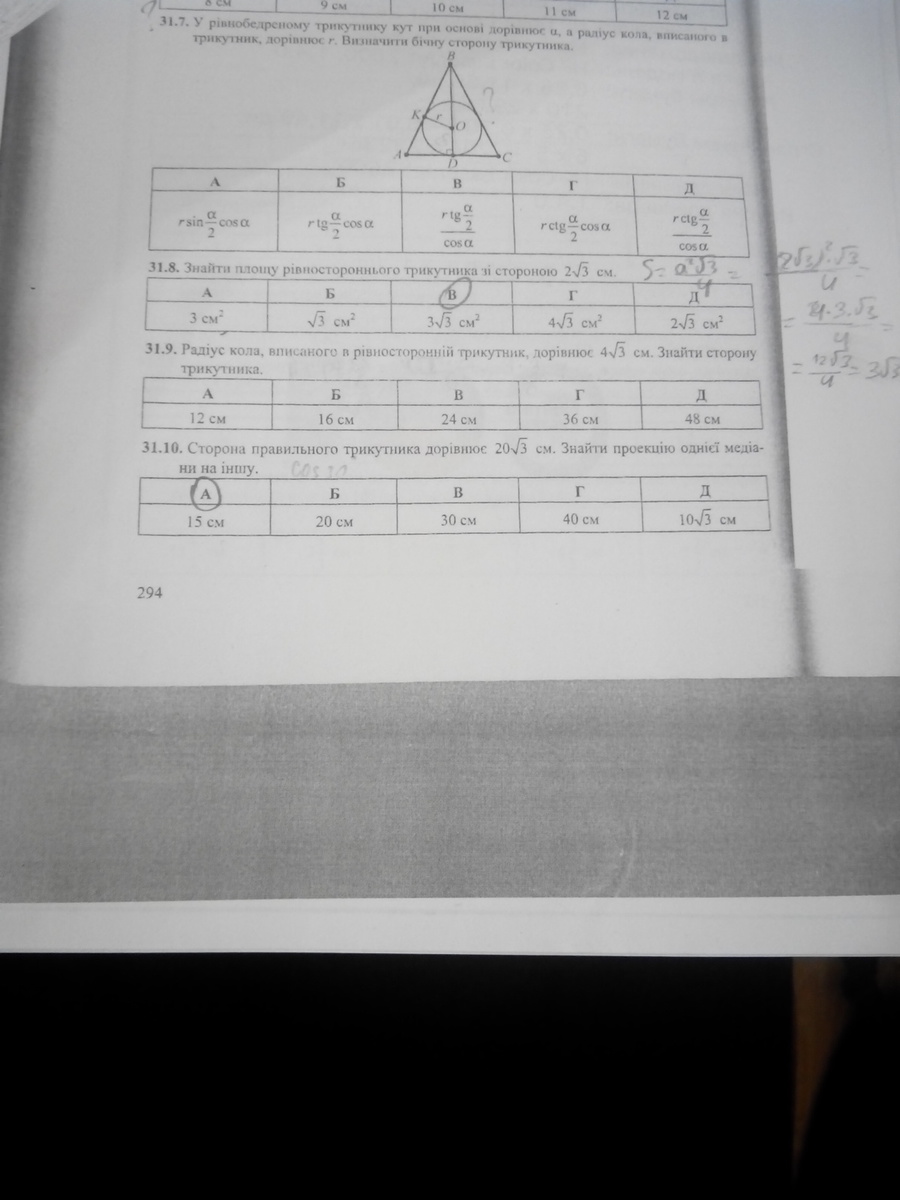 8 см 9 см 10 см 11 см 12 см
31.7. У рівнобедреному трикутнику кут при основі дорівнює α, а радіус кола, вписаного в
трикутник, дорівнює r. Визначити бічну сторону трикутника.
B
?
K r O
A D C
А Б В Г Д
r sin α/2 cos α r tg α/2 cos α r tg α/2 / cos α r ctg α/2 cos α r ctg α/2 / cos α
31.8. Знайти площу рівностороннього трикутника зі стороною 2√3 см. S = a²√3/4 = (2√3)²·√3/4 =
А Б В Г Д
3 см² √3 см² 3√3 см² 4√3 см² 2√3 см²
= 4·3·√3/4 =
= 12√3/4 = 3√3
31.9. Радіус кола, вписаного в рівносторонній трикутник, дорівнює 4√3 см. Знайти сторону
трикутника.
А Б В Г Д
12 см 16 см 24 см 36 см 48 см
31.10. Сторона правильного трикутника дорівнює 20√3 см. Знайти проекцію однієї медіа-
ни на іншу.
А Б В Г Д
15 см 20 см 30 см 40 см 10√3 см
294